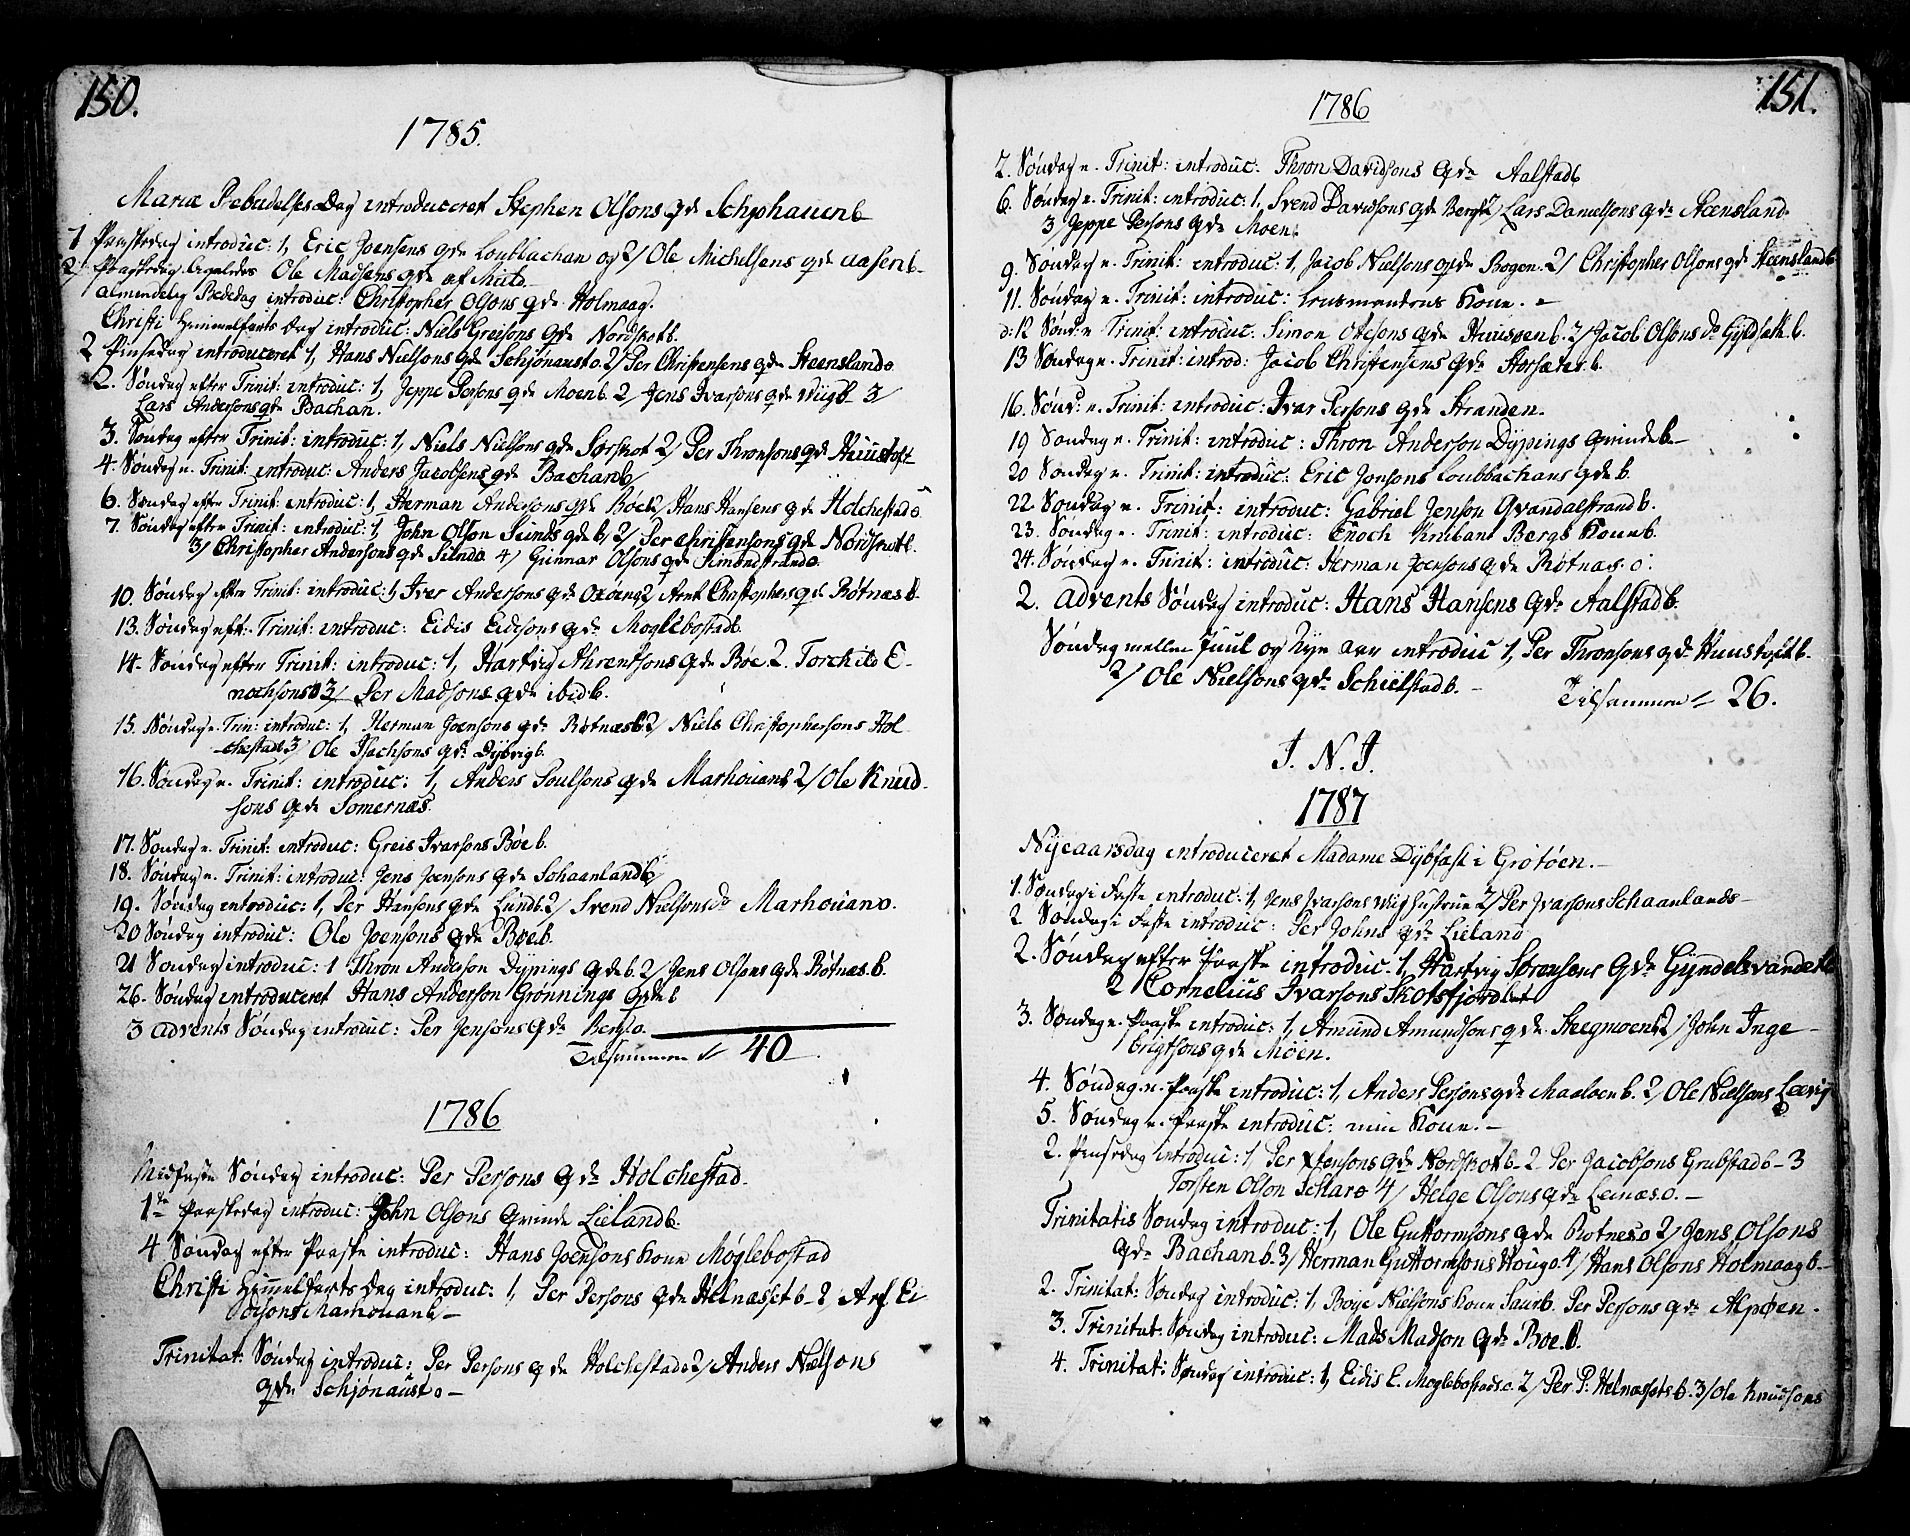 150.
1785.
Mariæ Bebudelses Dag introduceret Stephen Olsons qde Schjshauenb
1 Paaskedag introduc: 1, Eric Joensens qde Loubbachan og 2/ Ole Michelsens qde Aasenb.
2 Paaskedag ligeledes Ole Madsens qde af
almindelig Bededag introduc: Christopher Olsons qde Holmaag.
Christi Himmelfarts Dag introduc: Niels Greisons qde Nordskotb.
2 Pinsedag introduceret 1, Hans Nielsons qde Schjønausto. 2/ Per Christensens qde Steenslando
2. Søndag efter Trinit: introduc: 1, Jeppe Persons qde Moenb. 2/ Jens Ivarsons qde Wiigb 3/
Lars Andersons qde Bachan.
3. Søndag efter Trinit: introduc: 1, Niels Nielsons qde Sørskot 2/ Per Thronsons qde Huustoft
4. Søndag e. Trinit: introduc: Anders Jacobsens qde Bachanb
6. Søndag efter Trinit: introduc: 1, Herman Andersons qde Böe 2/ Hans Hansens qde Holchestado
7. Søndag efter Trinit: introduc: 1, John Olson Sunds qde b, 2/ Per Christensons qde Nordskotb.
3/ Christopher Andersons qde Sundo 4/ Gunnar Olsons qde Simonstrando.
10. Søndag efter Trinit: introduc: 1, Iver Andersons qde Oxöing 2/ Arnt Christophers qde Røtnæsb.
13. Søndag eft: Trinit: introduc: Eidis Eidisons qde Moglebostadb.
14. Søndag efter Trinit: introduc: 1, Hartvig Ahrentsons qde Böe 2. Torchild E-
nochsons 3/ Per Madsons qde ibidb.
15. Søndag e. Trin: introduc: 1, Herman Joensons qde Røtnæsb 2/ Niels Christophersons Hol
chestad 3/ Ole Isachsons qde Dybvigb.
16. Søndag e. Trinit: introduc: 1, Anders Poulsons qde Marhouanb 2/ Ole Knud-
sons qde Somernæs.
17. Søndag e. Trinit: introduc: Greis Ivarsons Böeb.
18. Søndag e. Trinit: introduc: Jens Joensons qde Schaanlandb
19. Søndag introduc: 1, Per Hansons qde Lundb. 2/ Svend Nielsons do Marhouano.
20 Søndag introduc: Ole Joensons qde Böeb.
21 Søndag introduc: 1 Thron Anderson Dypings qdeb. 2/ Jens Olsons qde Røtnæsb.
26. Søndag introduceret Hans Anderson Grønnings qdeb
3 Advents Søndag introduc: Per Jensons qde Bergso
Tilsammen 40
1786
Midfaste Søndag introduc: Per Persons qde Holchestad.
1te Paaskedag introduc: John Olsons Qvinde Lielandb.
4 Søndag efter Paaske introduc: Hans Joensons Kone Møglebostad
Christi Himmelfarts Dag introduc: 1, Per Persons qde Helnæssetb - 2, Arf. Ei
disons Marhouanb -
Trinitat: Søndag introduc: Per Persons qde Holchestado 2/ Anders Nielsons
qde Schjönausto -
151.
1786
2. Søndag e. Trinit: introduc: Thron Davidsons qde Aalstadb
6. Søndag e. Trinit: introduc: 1, Svend Davidsons qde Bergs 2/ Lars Danielsons qde Steensland-
3/ Jeppe Persons qde Moen.
9. Søndag e. Trinit: introduc: 1, Jacob Nielsons qde Bogen. 2/ Christopher Olsons qde Steenslandb
11. Søndag e. Trinit: introduc: Lensmandens Kone. -
d: 12 Sønd: e Trinit: introduc. Simon Olesons qde Huusøenb. 2/ Jacob Olsons do Gyldsetb.
13 Søndag e. Trinit: introd: Jacob Christensens qde Storsæterb.
16. Sønd: e. Trinit: introduc: Ivar Persons qde Stranden.
19 Søndag e. Trinit: introduc: Thron Anderson Dypings qvindeb.-
20 Søndag e. Trinit: introduc: Eric Jonsons Loubbachans qdeb.
22. Søndag e. Trinit: introduc: Gabriel Jenson Qvandalstrandb.
23. Søndag e. Trinit: introduc: Enoch Bergs Koneb.
24. Søndag e. Trinit: introduc: Herman Joensons qde Røtnæs. o.
2. Advents Søndag introduc: Hans Hansens qde Aalstadb.
Søndag mellem Juul og Nye aar introduc 1, Per Thronsons qde Huustoftb.
2/ Ole Nielsons qde Schielstadb. -
Tilsammen 26.
I. N. J.
1787
Nyeaarsdag introduceret Madame Dybfast i Grotöen. -
1. Søndag i Faste introduc: 1, Jens Ivarsons Wiig Hustrue 2/ Per Ivarsons Schaanlands -
2 Søndag i Faste introduc: Per Johns qde Lieland
2. Søndag efter Paaske introduc: 1, Hartvig Sørensens qde Gyndelsvandetb
2 Cornelius Ivarsons Skotsfjordb
3. Søndag e. Paaske introduc: 1, Amund Amundsons qde Steegmoenb 2/ John Inge-
brigtsons qde Möen.
4. Søndag e. Paaske introduc: 1, Anders Persons qde Maaløenb. 2/ Ole Nielsons Leevig
5. Søndag e. Paaske introduc: min Kone. -
2. Pinsedag introduc: 1, Per Xstensons qde Nordskotb - 2 Per Jacobsons Grubstadb - 3
Torsten Olson Scharo 4/ Helge Olsons qde Leinæs. o. -
Trinitatis Søndag introduc: 1, Ole Guttormsons qde Rotneso 2/ Jens Olsons
qde Bachanb. 3/ Herman Guttormsons Hougo. 4/ Hans Olsons Holmaagb -
2. Trinitat: Søndag introduc: 1, Boye Nielsons Kone Saurb. Per Persons qde Alpøen.
3. Trinitat: Søndag introduc: Mads Madson qde Böe. b.
4. Trinitat: Søndag introduc: 1, Eidis E. Moglebostads. o. 2/ Per P: Helnæssets b. 3/ Ole Knudsons